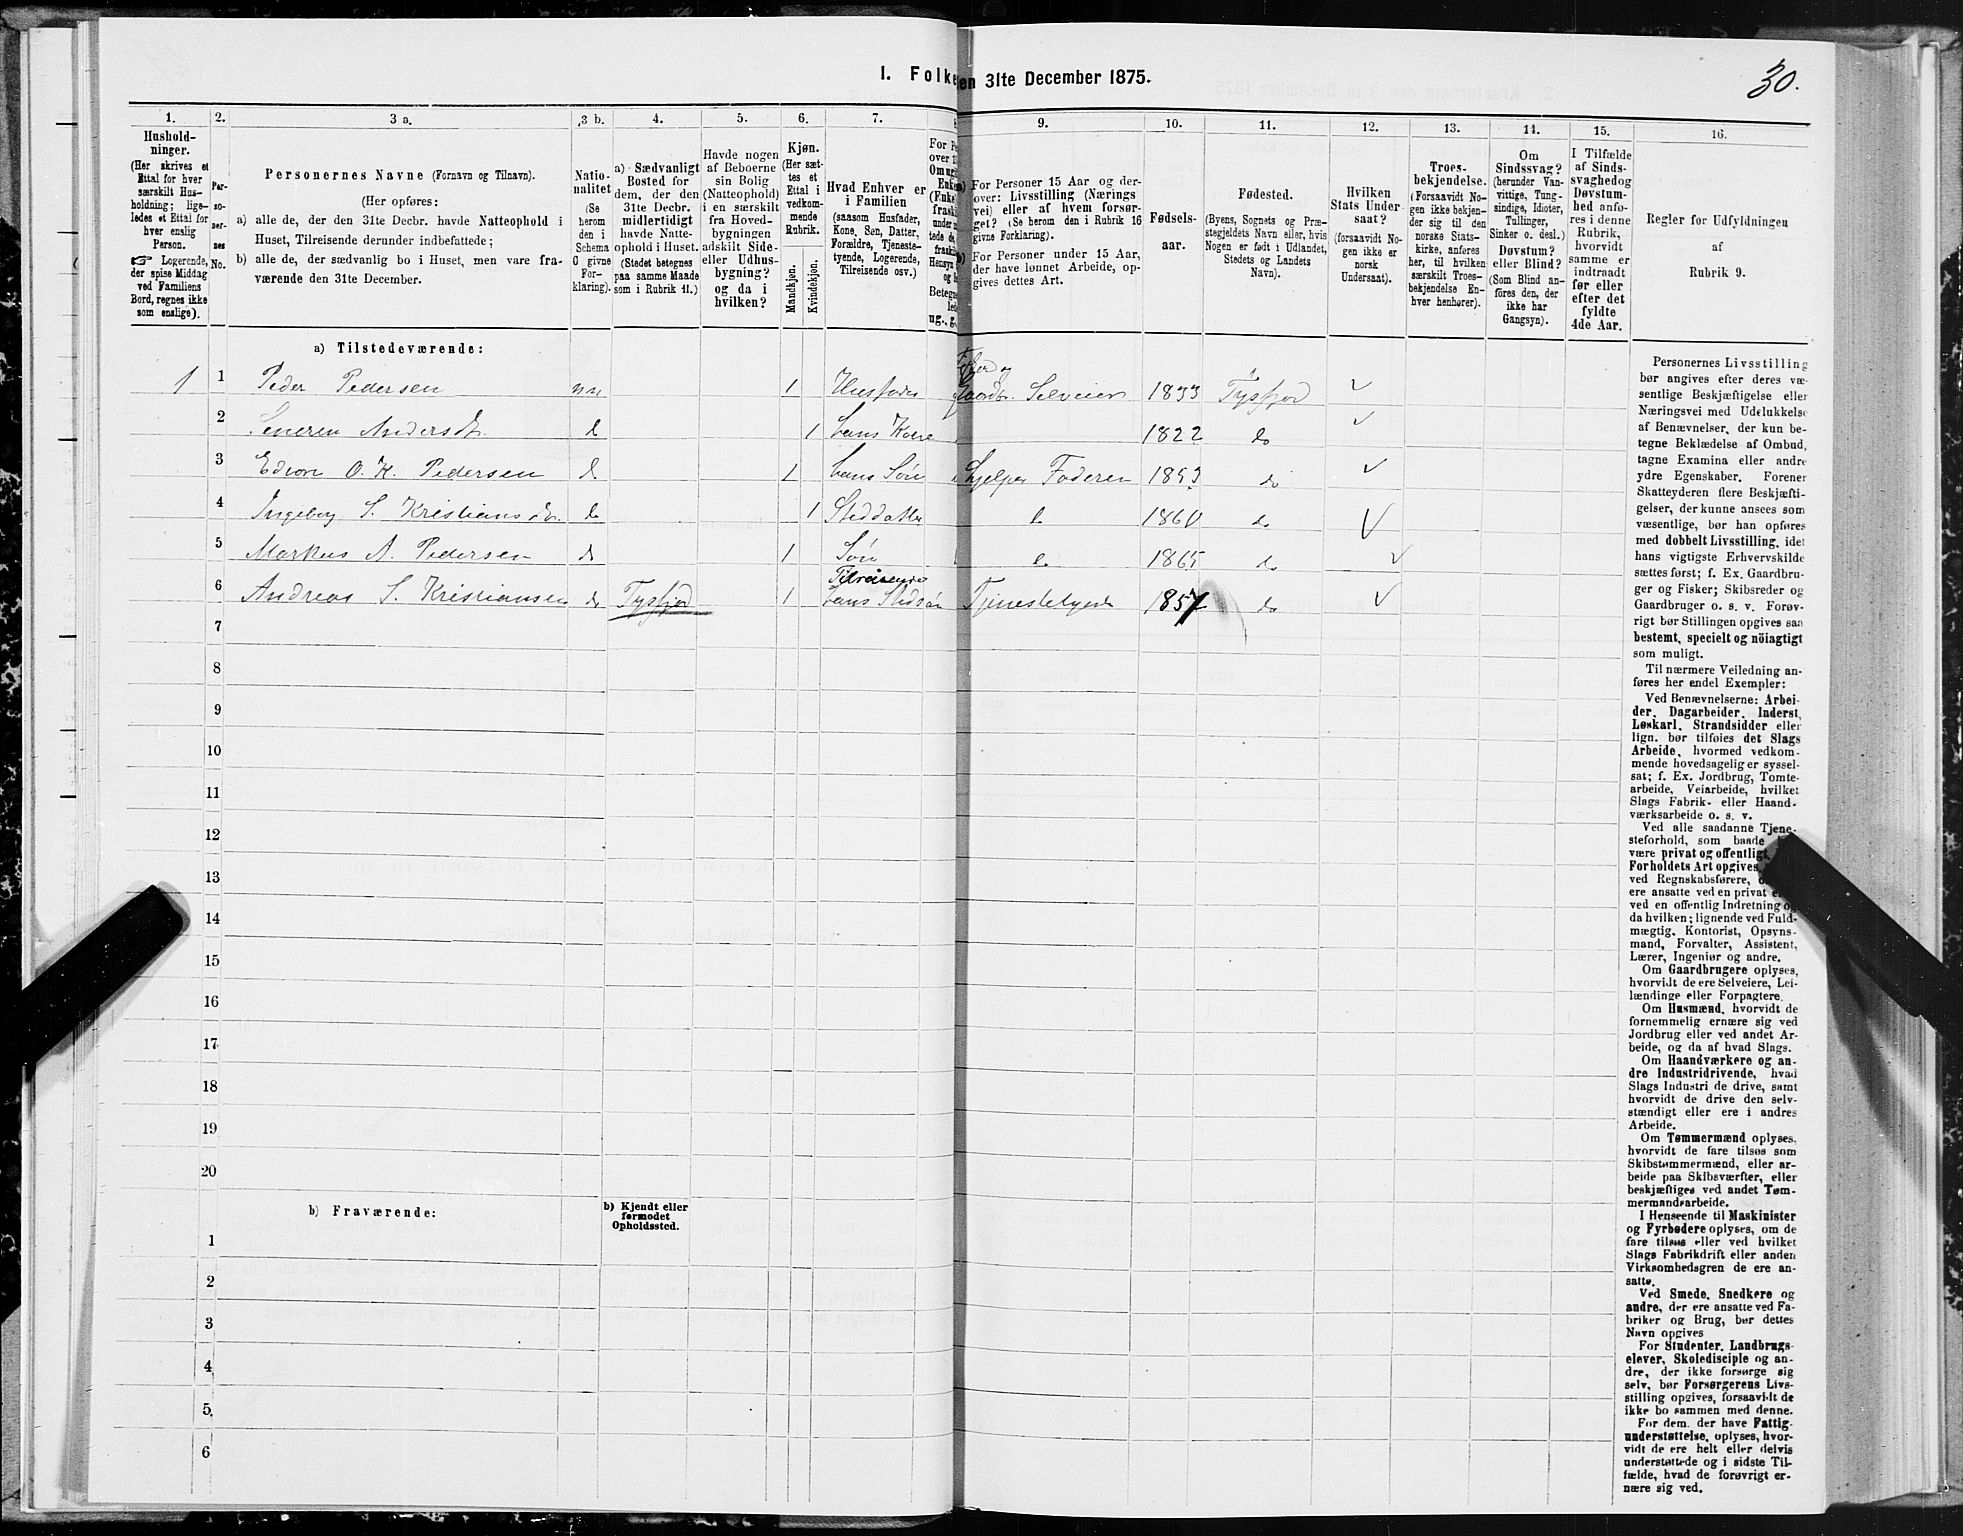 1. Folke en 31te December 1875.
30.
1.
2.
3 a.
3 b.
4.
5.
6.
7.
9.
10.
11.
12.
13.
14.
15.
16.
Hushold-
ninger.
(Her skrives et
Ettal for hver
særskilt Hus-
holdning; lige-
ledes et Ettal for
hver enslig
Person.
☞ Logerende,
der spise Middag
ved Familiens
Bord, regnes ikke
som enslige).
Per-
so-
ner-
nes
No.
Personernes Navne (Fornavn og Tilnavn).
(Her opføres:
a) alle de, der den 31te Decbr. havde Natteophold i
Huset, Tilreisende derunder indbefattede;
b) alle de, der sædvanlig bo i Huset, men vare fra-
værende den 31te December.
Natio-
nalitet
(Se
herom
den i
Schema
O givne
For-
klaring).
a) Sædvanligt
Bosted for
dem, der den
31te Decbr.
midlertidigt
havde Natte-
ophold i Huset.
(Stedet betegnes
paa samme Maade
som i Rubrik 11.)
Havde nogen
af Beboerne
sin Bolig
(Natteophold)
i en særskilt
fra Hoved-
bygningen
adskilt Side-
eller Udhus-
bygning?
og da i
hvilken?
Kjøn.
(Her sæt-
tes et
Ettal i
vedkom-
mende
Rubrik.
Mandkjøn.
Kvindekjøn.
Hvad Enhver er
i Familien
(saasom Husfader,
Kone, Søn, Datter,
Forældre, Tjeneste-
tyende, Logerende,
Tilreisende osv.)
For Personer 15 Aar og der-
over: Livsstilling (Nærings
vei) eller af hvem forsør-
get? (Se herom den i Rubrik 16
givne Forklaring).
For Personer under 15 Aar,
der have lønnet Arbeide, op-
gives dettes Art.
Fødsels-
aar.
Fødested.
(Byens, Sognets og Præ-
stegjeldets Navn eller, hvis
Nogen er født i Udlandet,
Stedets og Landets
Navn).
Hvilken
Stats Under-
saat?
(forsaavidt No-
gen ikke er
norsk
Undersaat).
Troes-
bekjendelse.
(Forsaavidt No-
gen ikke bekjen-
der sig til den
norske Stats-
kirke, anføres
her, til hvilken
særskilt Troes-
bekjendelse En-
hver henhører).
Om
Sindssvag?
(herunder Van-
vittige, Tung-
sindige, Idioter,
Tullinger,
Sinker o. desl.)
Døvstum?
eller Blind?
(Som Blind an-
føres den, der
ikke har
Gangsyn).
I Tilfælde
af Sinds-
svaghedog
Døvstum-
hed anfø-
res i denne
Rubrik,
hvorvidt
samme er
indtraadt
før eller
efter det
fyldte
4de Aar.
Regler for Udfyldningen
af
Rubrik 9.
a) Tilstedeværende:
1 1 Peder Pedersen nn 1 Husfader Gaardbr. Selveier 1833 Tysfjord
2 Andersdtr. d 1 hans Kone 1822 do
3 Edvon O. K. Pedersen d 1 hans Søn Hjelper Faderen 1853 do
4 Ingeborg S. Kristiansdtr. do 1 Steddatter do 1860 do
5 Markus A. Pedersen do 1 Søn do 1865 do
Tilreisende
6 Andreas S. Kristiansen do Tysfjord 1 hans Stedsøn Tjenestetyende 1857 do
7
8
9
10
11
12
13
14
15
16
17
18
19
20
b) Fraværende:
b) Kjendt eller
formodet
Opholdssted.
1
2
3
4
5
6
Personernes Livsstilling
bør angives efter deres væ-
sentlige Beskjæftigelse eller
Næringsvei med Udelukkelse
af Benævnelser, der kun be-
tegne Beklædelse af Ombud,
tagne Examina eller andre
ydre Egenskaber. Forener
Skatteyderen flere Beskjæfti-
gelser, der kunne ansees som
væsentlige, bør han opføres
med dobbelt Livsstilling, idet
hans vigtigste Erhvervskilde
sættes først; f. Ex. Gaardbru-
ger og Fisker; Skibsreder og
Gaardbruger o. s. v. Forøv-
rigt bør Stillingen opgives saa
bestemt, specielt og nöiagtigt
som muligt.
Til nærmere Veiledning an-
føres her endel Exempler:
Ved Benævnelserne: Arbei-
der, Dagarbeider, Inderst,
Løskarl, Strandsidder eller
lign. bør tilføies det Slags
Arbeide, hvormed vedkom-
mende hovedsagelig er syssel-
sat; f. Ex. Jordbrug, Tomte-
arbeide, Veiarbeide, hvilket
Slags Fabrik- eller Haand-
værksarbeide o. s. v.
Ved alle saadanne Tjene-
steforhold, som baade
være privat og offentligt,
Forholdets Art opgives,
ved Regnskabsførere,
ere ansatte ved en privat
ved en offentlig Indretning og
da hvilken; lignende ved Fuld-
mægtig, Kontorist, Opsyns-
mand, Forvalter, Assistent,
Lærer, Ingeniør og andre.
Om Gaardbrugere oplyses,
hvorvidt de ere Selveiere, Lei-
lændinge eller Forpagtere.
Om Husmænd, hvorvidt de
fornemmelig ernære sig ved
Jordbrug eller ved andet Ar-
beide, og da af hvad Slags.
Om Haandværkere og an-
dre Industridrivende, hvad
Slags Industri de drive, samt
hvorvidt de drive den selv-
stændigt eller ere i andres
Arbeide.
Om Tømmermænd oplyses,
hvorvidt de fare tilsøs som
Skibstømmermænd, eller ar-
beide paa Skibsværfter, eller
beskjæftiges ved andet Tøm-
mermandsarbeide.
I Henseende til Maskinister
og Fyrbødere oplyses, om de
fare tilsøs eller ved hvilket
Slags Fabrikdrift eller anden
Virksomhedsgren de ere an-
satte.
Ved Smede, Snedkere og
andre, der ere ansatte ved Fa-
briker og Brug, bør dettes
Navn opgives
For Studenter, Landbrugs-
elever, Skoledisciple og an-
dre, der ikke forsørge sig
selv, bør Forsørgerens Livs-
stilling opgives, forsaavidt de
ikke bo sammen med denne.
For dem, der have Fattig-
understøttelse, oplyses, hvor-
vidt de ere helt eller delvis
understøttede og i sidste Til-
fælde, hvad de forøvrigt er-
nære sig ved.